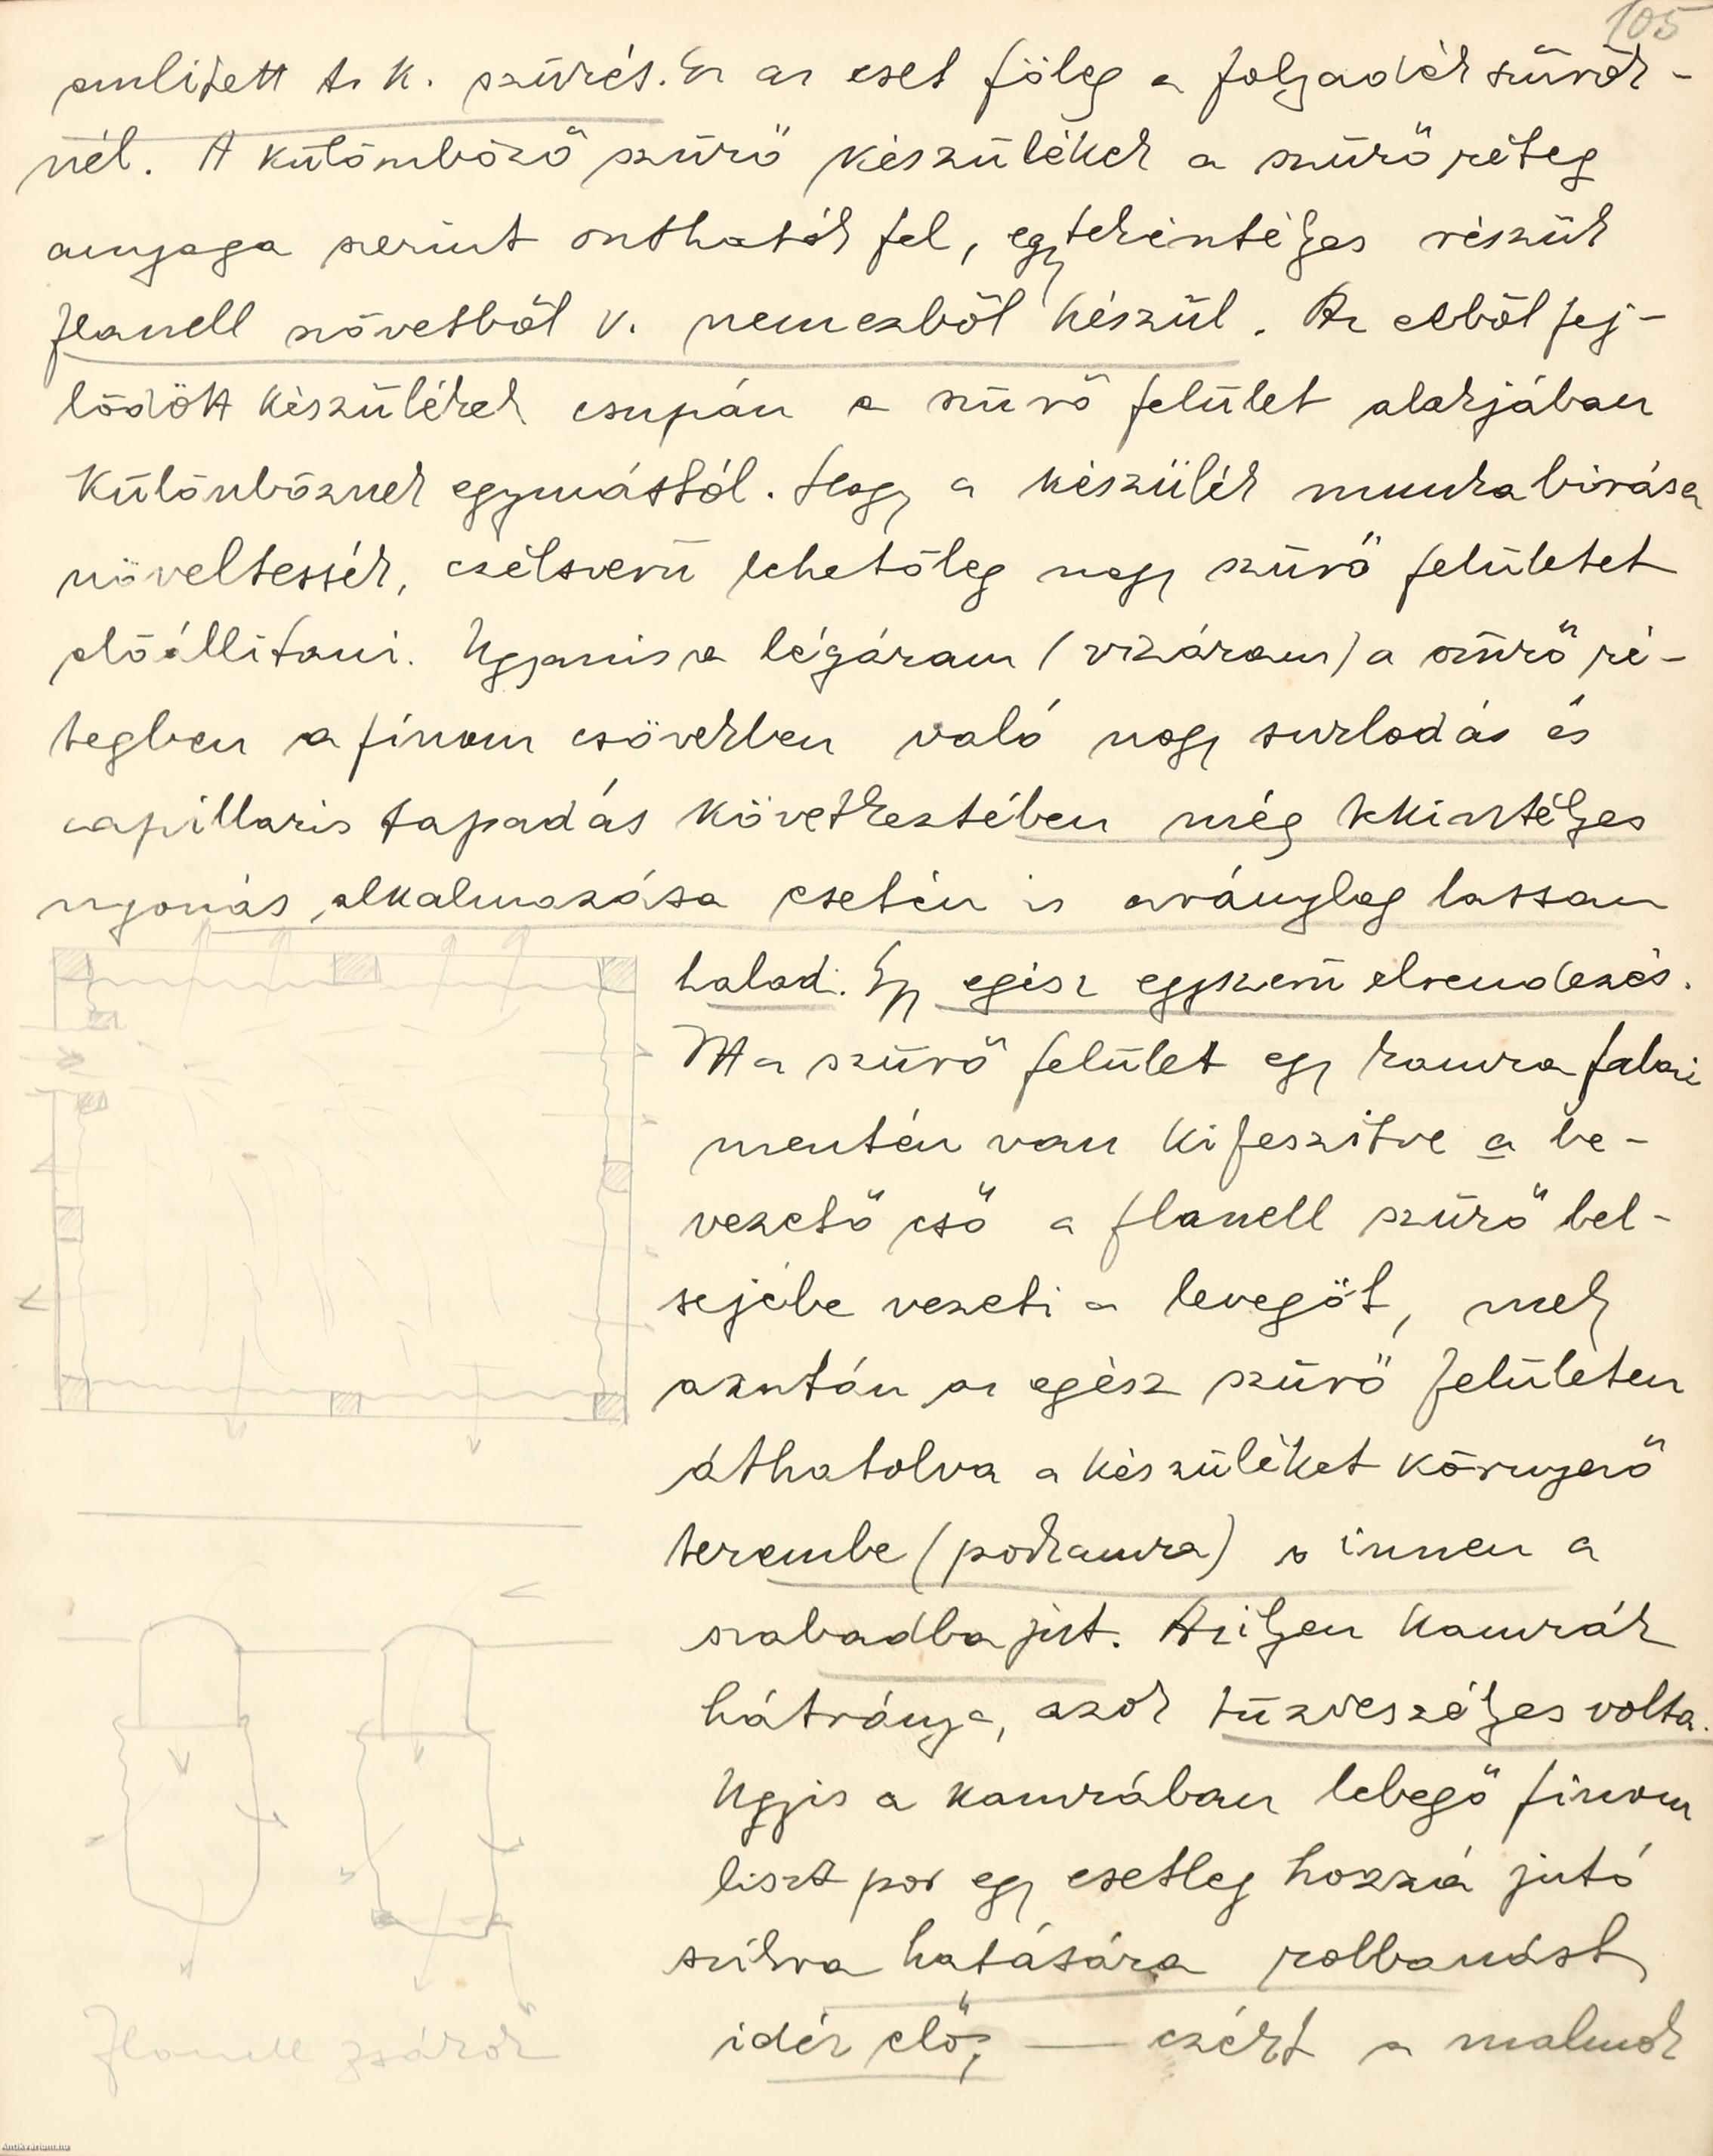 105
emlitett t. k. szürés. Ez az eset főleg a folyadék szűrők-
nél. A külömböző szürő készülékek a szürő réteg
anyaga szerint oszthatók fel, egy tekintélyes részük
flanell szövetből v. nemezből készül. Az ebből fej-
lődött készülékek csupán a szürő felület alakjában
különböznek egymástól. Hogy a készülék munkabirása
növeltessék, czélszerü lehetőleg nagy szürő felületet
előállítani. Ugyanis a légáram (vizáram) a szürő ré-
tegben a finom csövekben való nagy surlodás és
capillaris tapadás következtében még tekintélyes
nyomás alkalmazása esetén is aránylag lassan
halad. Egy egész egyszerü elrendezés.
Itt a szürő felület egy kamra falai
mentén van kifeszitve a be-
vezető cső a flanell szürő bel-
sejébe vezeti a levegőt, mely
azután az egész szürő felületen
áthatolva a készüléket környező
terembe (porkamra) s innen a
szabadba jut. Az ilyen kamrák
hátránya, azok tüzveszélyes volta.
Ugyis a kamrában lebegő finom
liszt por egy esetleg hozzá jutó
szikra hatására robbanást
idéz elő; — ezért a malmok
Flanell zsákok
Antikvarium.hu